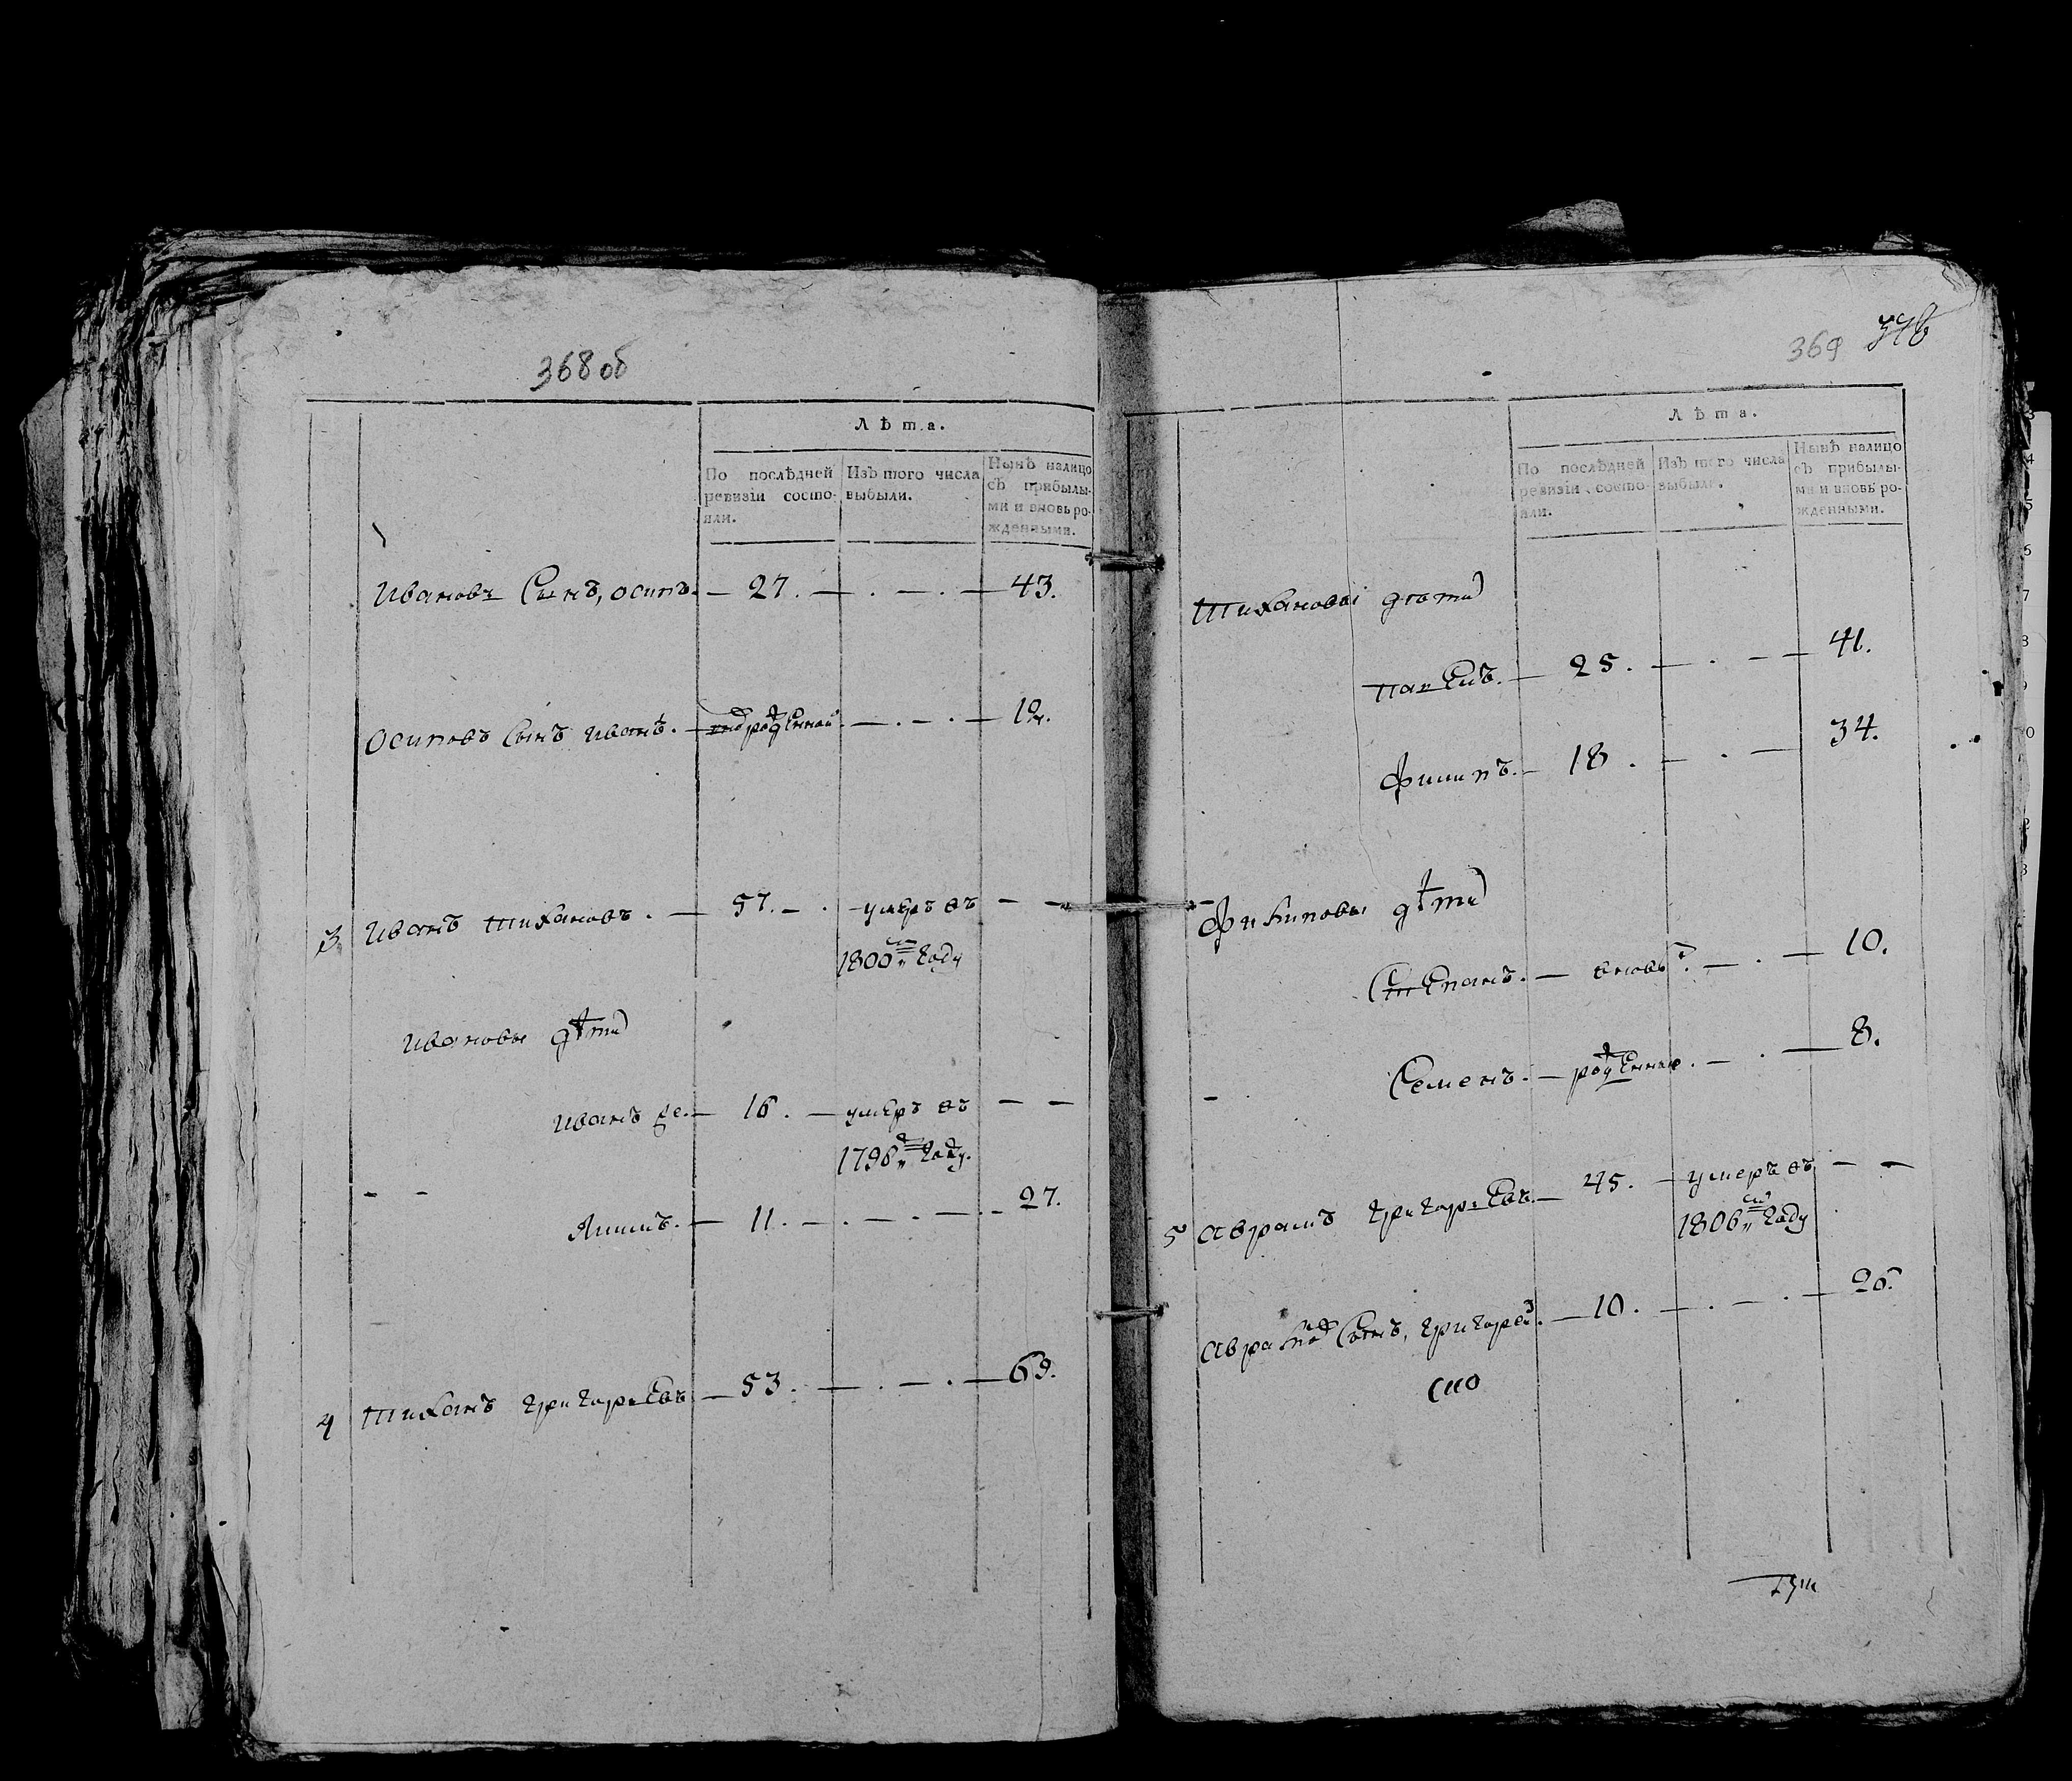 368 об
Лѣта.
По послѣдней ревизіи состояли.
Изъ того числа выбыли.
Нынѣ налицо съ прибылыми и вновь рожденными.
Ивановъ Сынъ, осипъ. — 27. — . — . — 43.
Осиповъ Сынъ Иванъ. — рожденной — . — . — 12.
3 Иванъ Тихановъ. — 57. — . — умеръ въ — —
1800м году
Ивановы дѣти
Иванъ — 16. — умеръ въ — —
1796м году.
11. — . — . — 27.
4 Тиханъ григорьевъ — 53. — . — . — 69.
369
Лѣта.
По послѣдней ревизіи состояли.
Изъ того числа выбыли.
Нынѣ налицо съ прибылыми и вновь рожденными.
Тихановы дѣти
25. — . — — 41.
Филипъ. — 18. — . — 34.
Филиповы дѣти
Степанъ. — вновь — . — 10.
Семенъ. — рожденные. — . — 8.
5 Аврамъ григорьевъ — 45. — умеръ въ — —
1806м году
Сынъ, григорей. — 10. — . — . — 26.